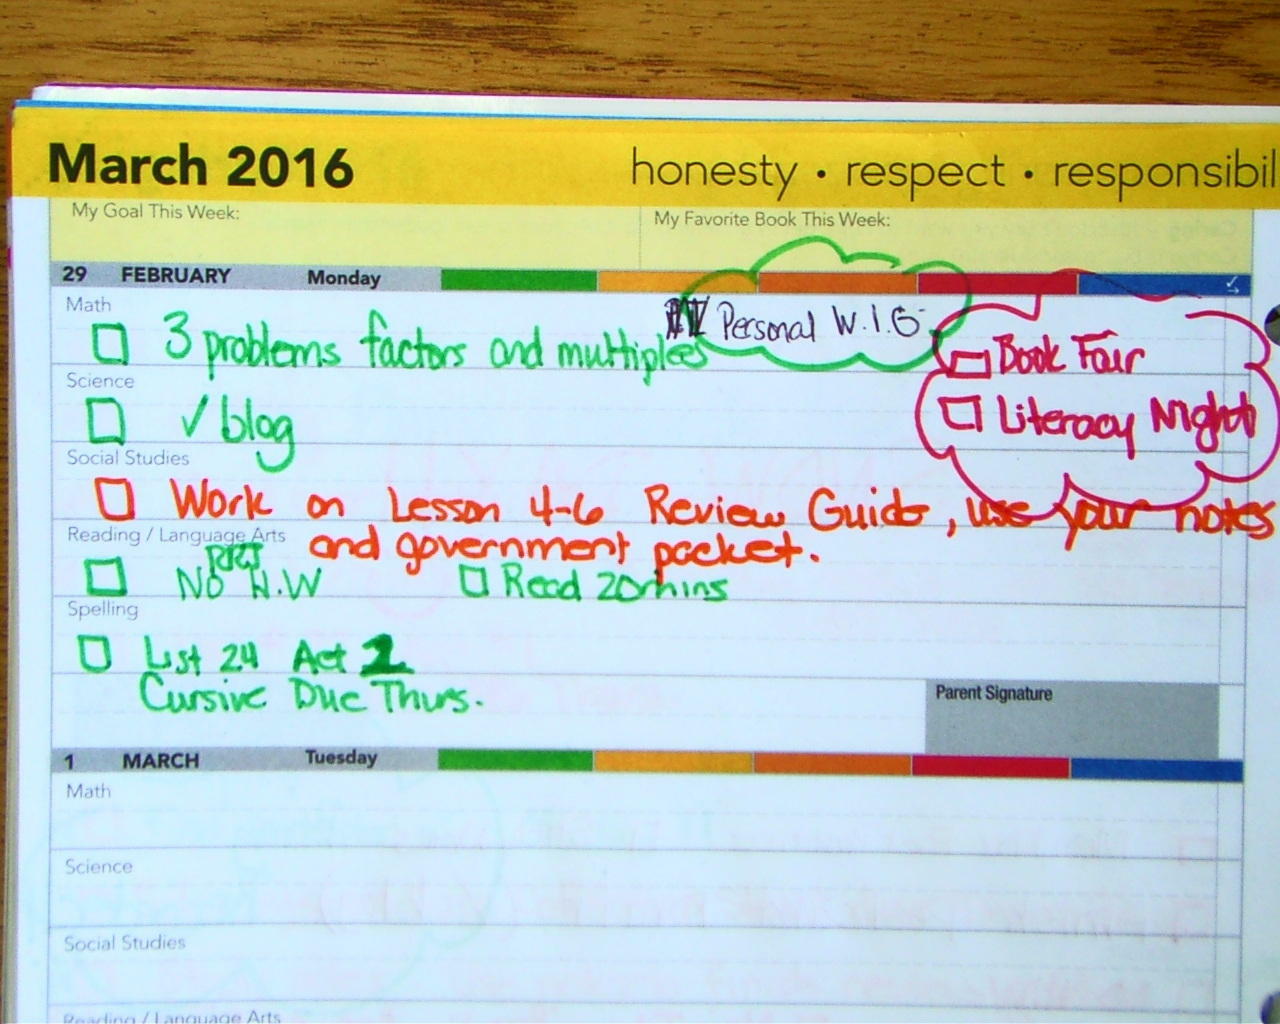 March 2016 honesty • respect • responsibil
My Goal This Week: My Favorite Book This Week:
29 FEBRUARY Monday
Math
3 problems factors and multiples
Personal W.I.G.
Book Fair
Science
✓ blog
Literacy Night
Social Studies
Work on Lesson 4-6 Review Guide, use your notes
Reading / Language Arts
and government packet.
No H.W Read 20 mins
Spelling
List 24 Act 2
Cursive Due Thurs.
Parent Signature
1 MARCH Tuesday
Math
Science
Social Studies
Reading / Language Arts